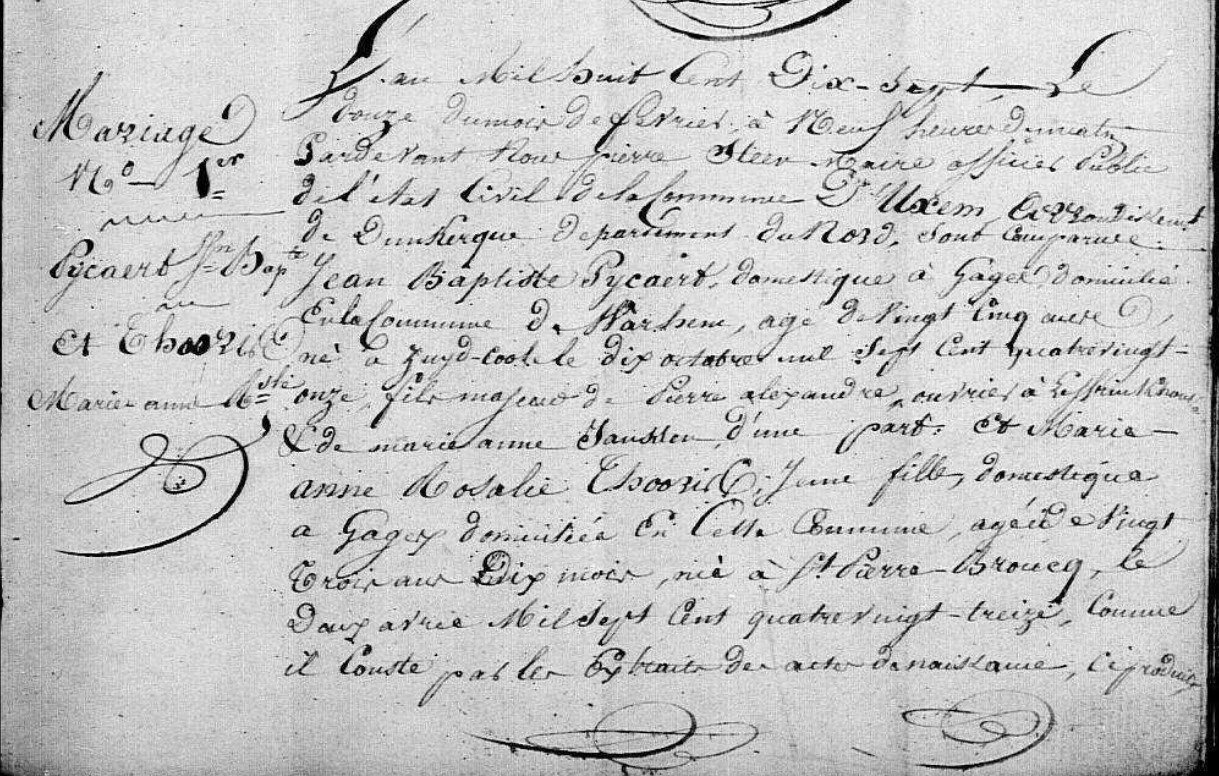 Mariage
N.o 1.er
Pycaert Jn Bapte
et Thooris
Marie anne Rslie
L'an Mil huit Cent Dix-Sept, Le
douze du mois de fevrier, à Neuf heures du matin
Pardevant Nous pierre Steen Maire officier Public
de l'état Civil de la Commune D'Uxem, Arrondissemt
de Dunkerque departement du Nord, sont comparus
Jean Baptiste Pycaert, domestique à Gages domicilié
En la Commune de Warhem, agé de Vingt Cinq ans
né à Zuyd-Coote le dix octobre mil Sept Cent quatrevingt-
onze, fils majeur de Pierre alexandre, ouvrier à Leffrinkhouke
& de marie anne Janssen, d'une part: Et Marie-
anne Rosalie Thooris, Jeune fille, domestique
a Gages domiciliée En Cette Commune, agée de Vingt
Trois ans Dix mois, née à St. Pierre-Broucq, le
Deux avril Mil Sept Cent quatrevingt-treize, Comme
il Conste par les Extraits des actes de naissance, ci produits